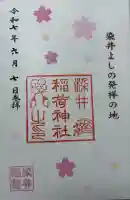 染井よしの発祥の地
染井
稲荷神社
令和七年六月七日参拝